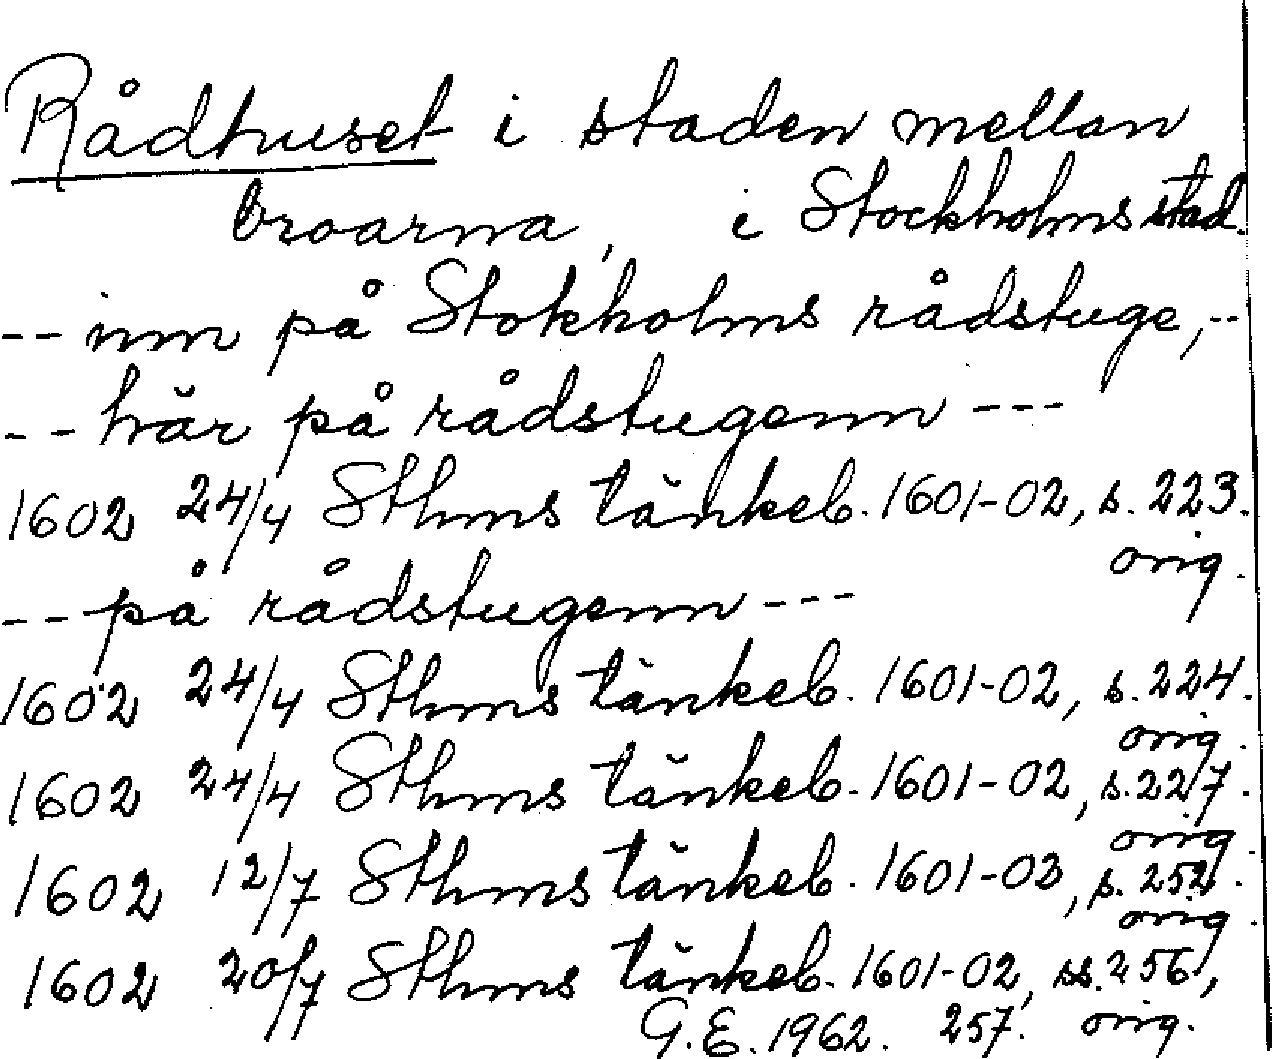 Rådhuset i staden mellan
broarna, i Stockholms stad.
-- inn på Stokholms rådstuge, --
-- här på rådstugenn ---
1602 24/4 Sthms tänkeb. 1601-02, s. 223.
orig.
-- på rådstugenn ---
1602 24/4 Sthms tänkeb. 1601-02, s. 224.
orig.
1602 24/4 Sthms tänkeb. 1601-02, s. 227.
orig.
1602 12/7 Sthms tänkeb. 1601-02, s. 252.
orig.
1602 20/7 Sthms tänkeb. 1601-02, ss. 256,
G.E. 1962. 257. orig.